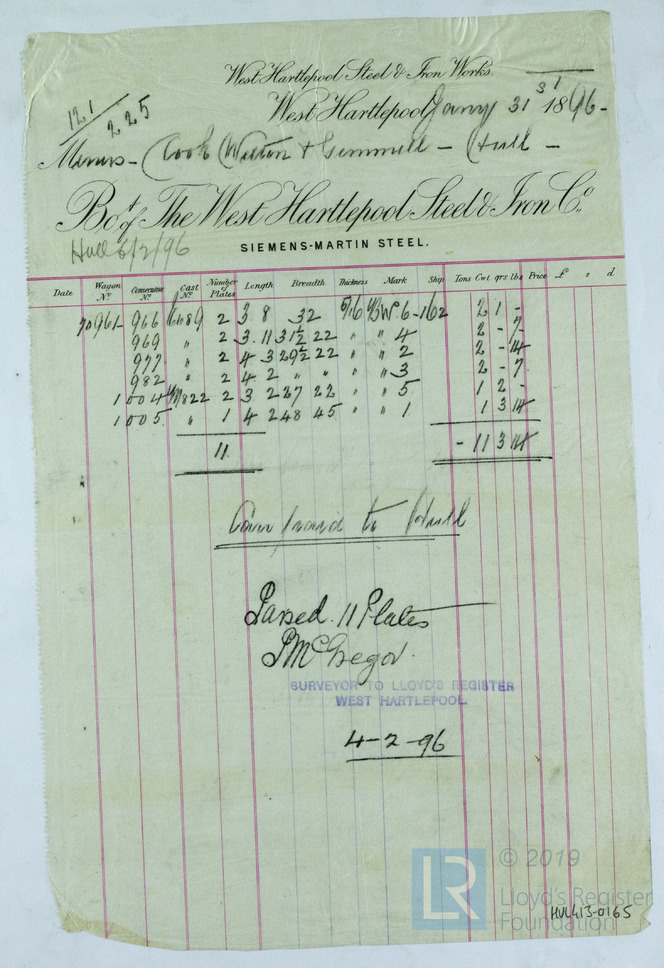 West Hartlepool Steel & Iron Works.
121
225
West Hartlepool, Jany 31st 1896-
Messrs - Cook Welton & Gemmell - Hull -
Bot of The West Hartlepool Steel & Iron Co.,
Hull 6/2/96
SIEMENS-MARTIN STEEL.
Date Wagon No. Consecutive No. Cast No. Number of Plates Length Breadth Thickness Mark Ship Tons Cwt qrs lbs Price £ s d
961 966 6689 2 3 8 32 5/16 6-162 2 1 -
969 " 2 3.11 31½ 22 " " 4 2 - 7
977 " 2 4 3 29½ 22 " " 2 2 - 14
982 " 2 4 2 " " " " 3 2 - 7
1004 822 2 3 2 27 22 " " 5 1 2 -
1005 " 1 4 2 48 45 " " 1 1 3 14
11 - 11 3 14
Carr paid to Hull
Passed 11 Plates
J McGregor.
SURVEYOR TO LLOYD'S REGISTER
WEST HARTLEPOOL.
4-2-96
LR © 2019
Lloyd's Register
Foundation
HUL413-0165